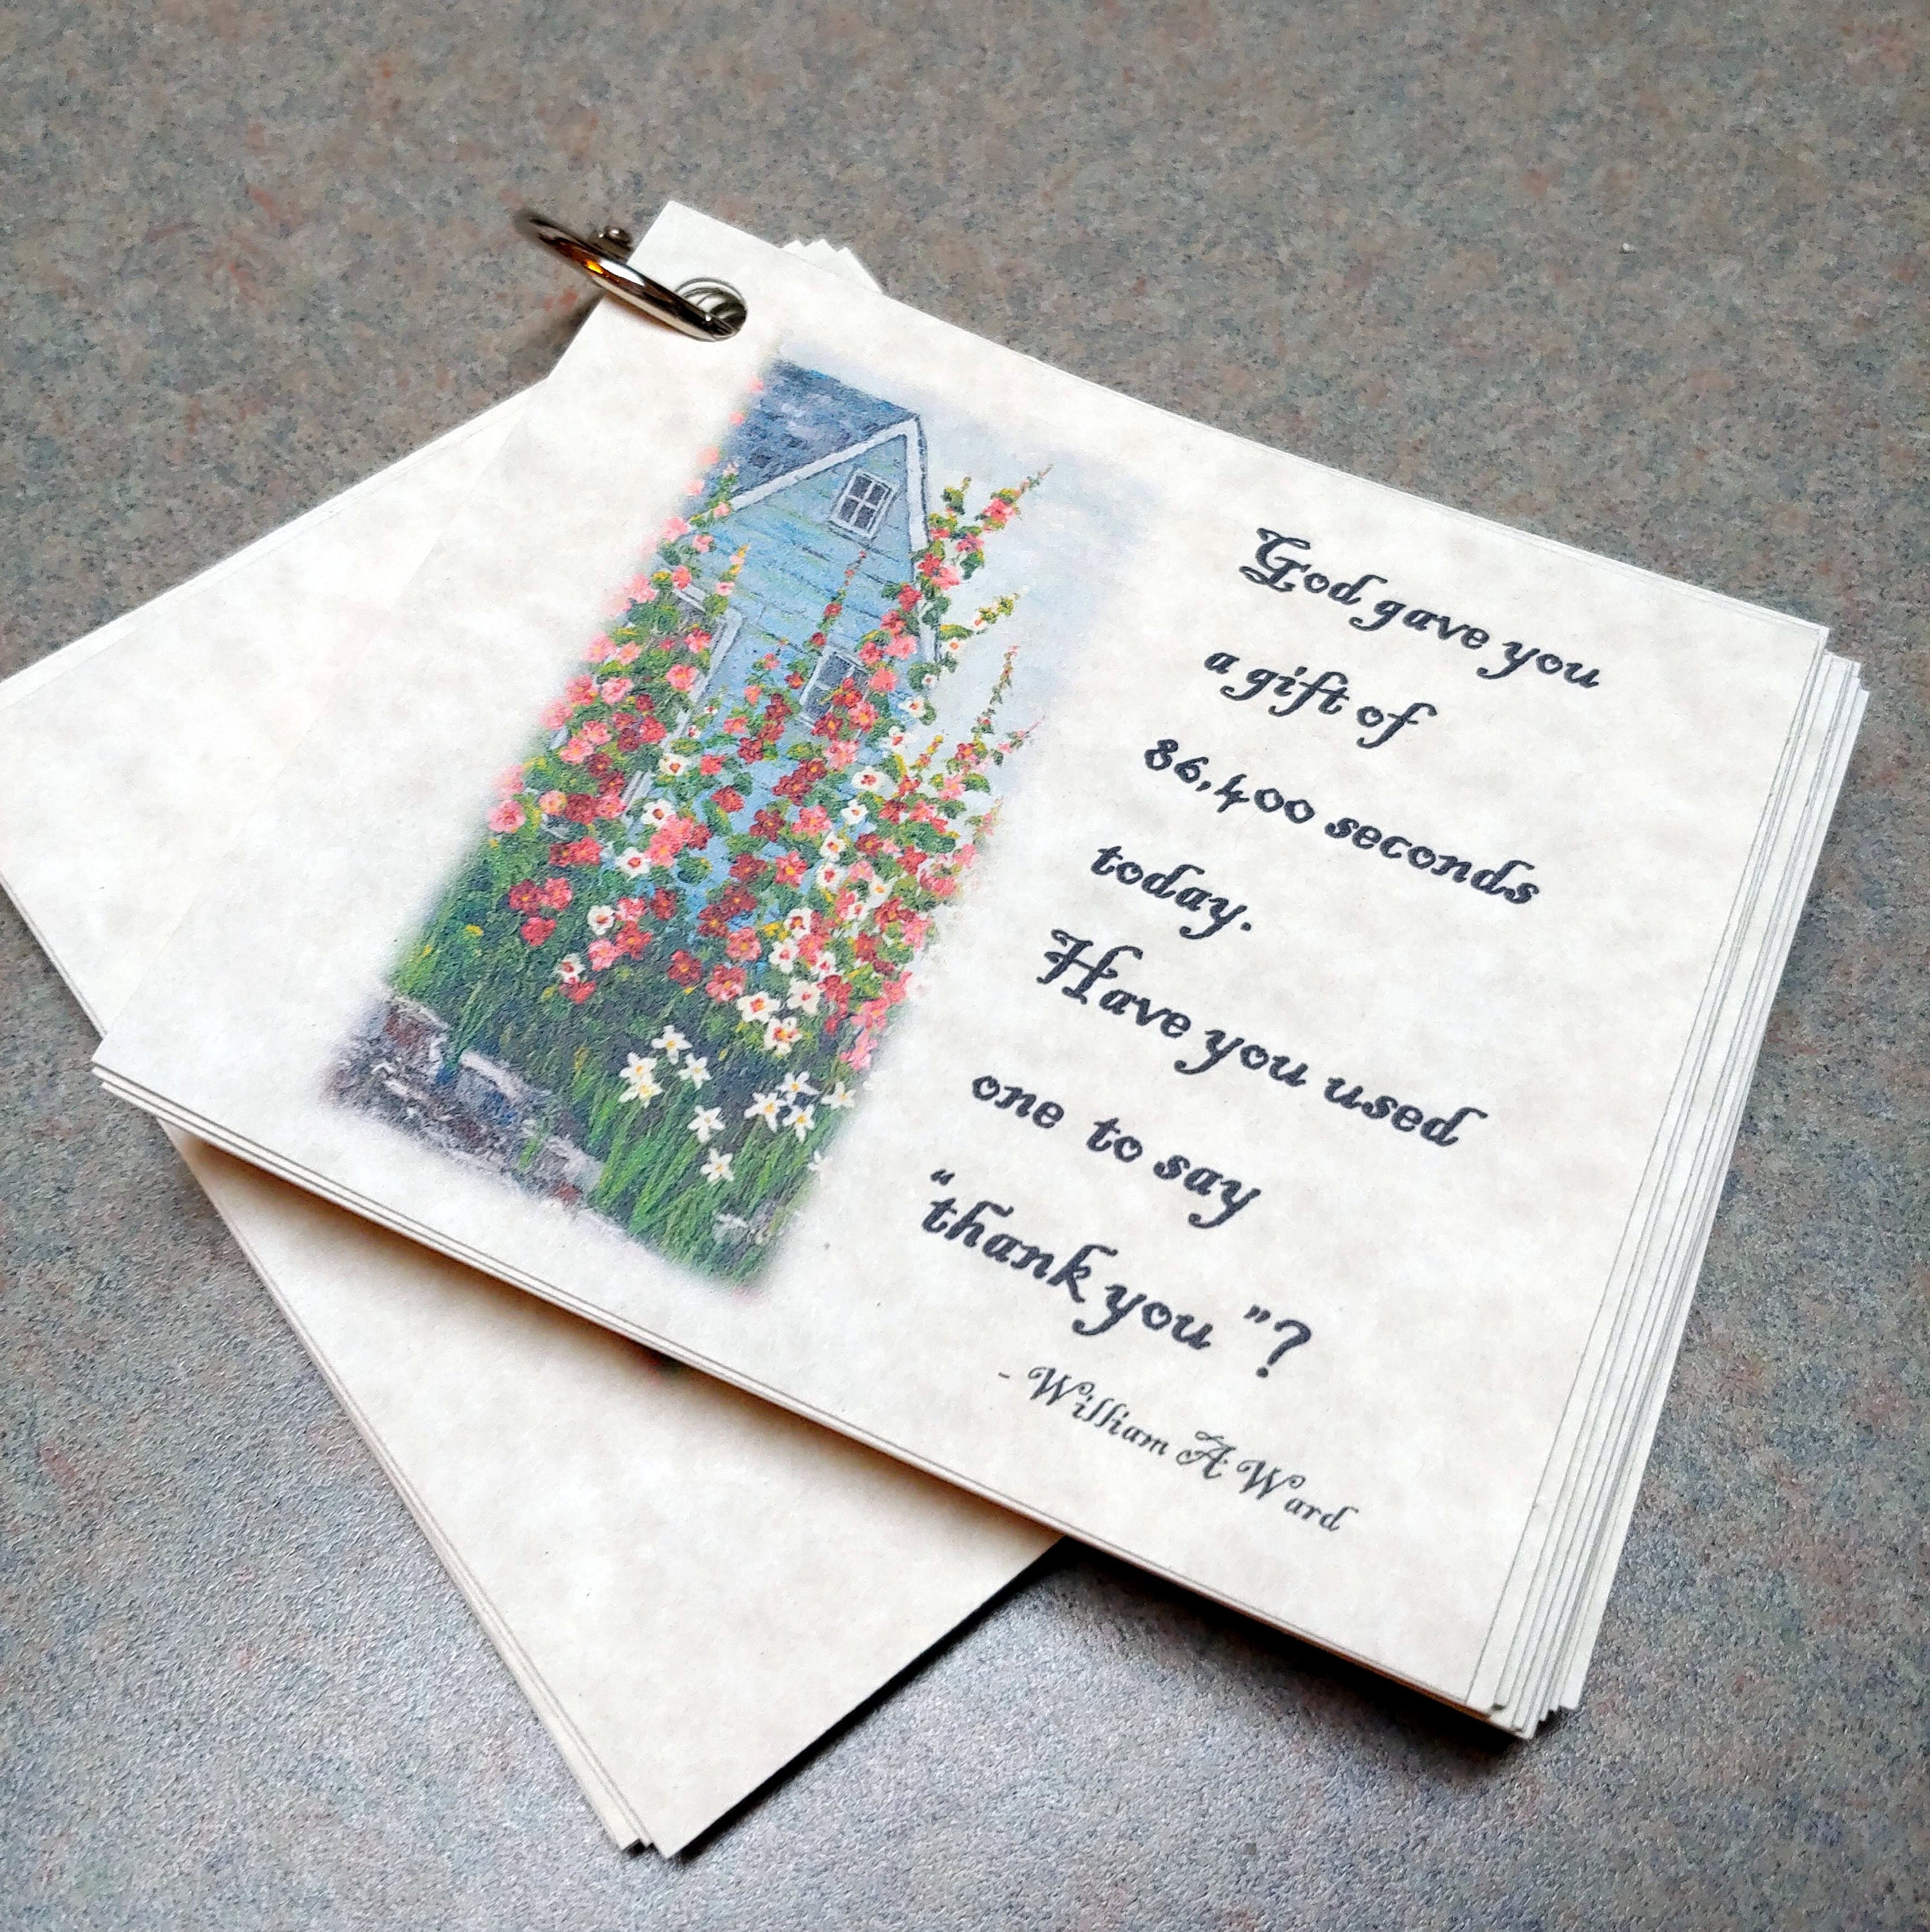 God gave you
a gift of
86,400 seconds
today.
Have you used
one to say
"thank you"?
- William A Ward